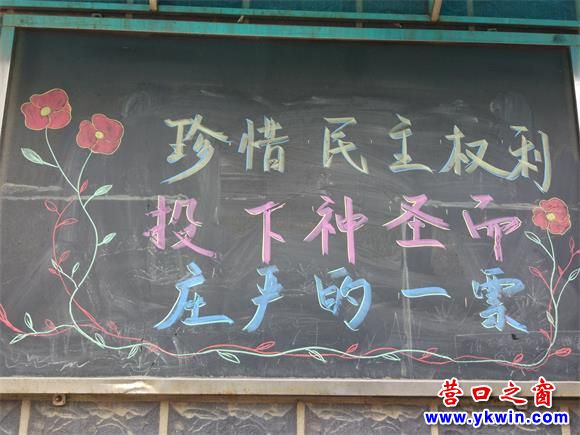 珍惜民主权利
投下神圣而
庄严的一票
营口之窗
www.ykwin.com